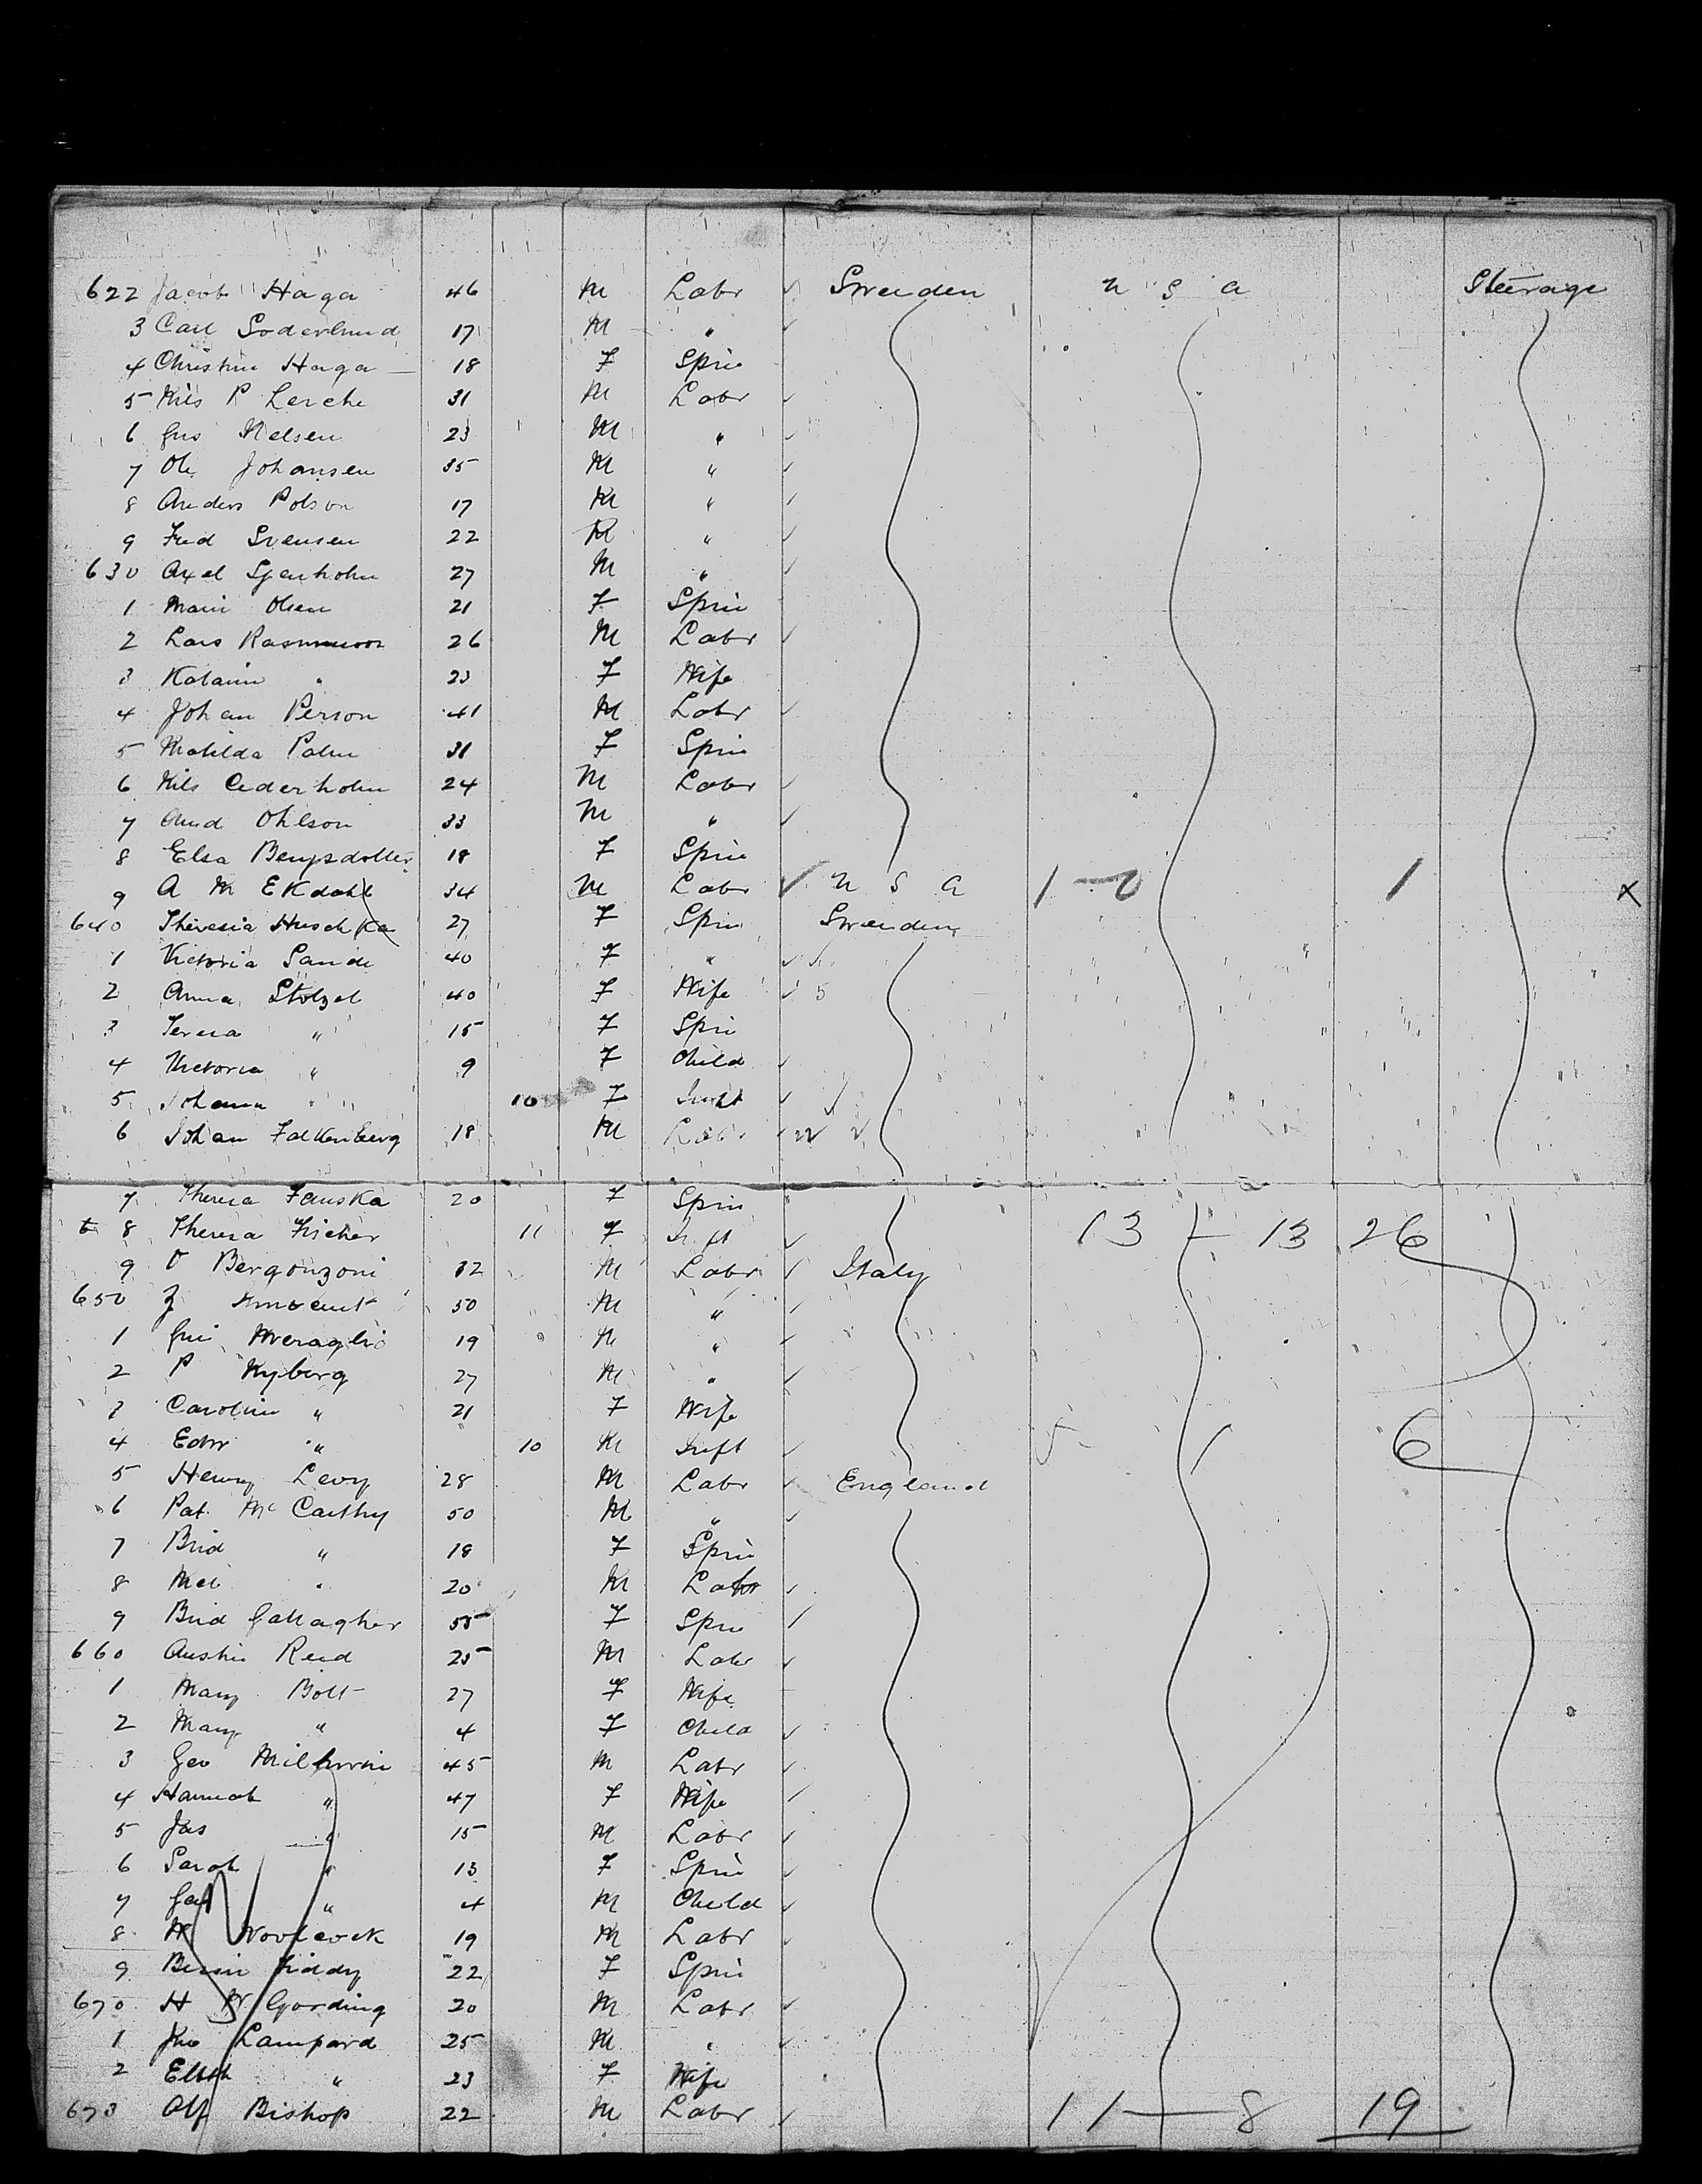 622 Jacob Haga 46 M Labr Sweeden U S A Steerage
3 Carl Soderlund 17 M "
4 Christine Haga 18 F Spin
5 Nils P Lerche 31 M Labr
6 Gus Nelsen 23 M "
7 Ole Johansen 35 M "
8 Anders Polson 17 M "
9 Fred Svensen 22 M "
630 Axel Sjenholm 27 M "
1 Marie Olsen 21 F Spin
2 Lars Rasmusson 26 M Labr
3 " 23 F Wife
4 Johan Person 41 M Labr
5 Matilda Palm 31 F Spin
6 Nils Cederholm 24 M Labr
7 And Ohlson 33 M "
8 Elsa 18 F Spin
9 A M Ekdahl 34 M Labr U S A 1 1 X
640 Theresia Huschka 27 F Spin Sweeden
1 Victoria Sande 40 F "
2 Anna Stolzel 40 F Wife
3 Teresa " 15 F Spin
4 Victoria " 9 F Child
5 Johann " 10 F Inft
6 Johan Falkenberg 18 M Labr
7 Theresa Fauska 20 F Spin
8 Theresa Fischer 11 F Inft 13 - 13 26
9 O Bergonzoni 32 M Labr Italy
650 Z Innocent 50 M "
1 19 M "
2 P Nyberg 27 M "
3 Caroline " 21 F Wife
4 Edw " 10 M Inft 5 1 6
5 Henry Levy 28 M Labr England
6 Pat McCarthy 50 M "
7 Brid " 18 F Spin
8 " 20 M Labr
9 Brid Gallagher 55 F Spin
660 Austin Reid 25 M Labr
1 Mary Bolt 27 F Wife
2 Mary " 4 F Child
3 Geo 45 M Labr
4 Hannah " 47 F Wife
5 Jas " 15 M Labr
6 Sarah " 13 F Spin
7 " 4 M Child
8 Woolcock 19 M Labr
9 Fiddy 22 F Spin
670 H W Gording 20 M Labr
1 Jno Lampard 25 M "
2 Elizth " 23 F Wife
673 Alf Bishop 22 M Labr 11 - 8 19